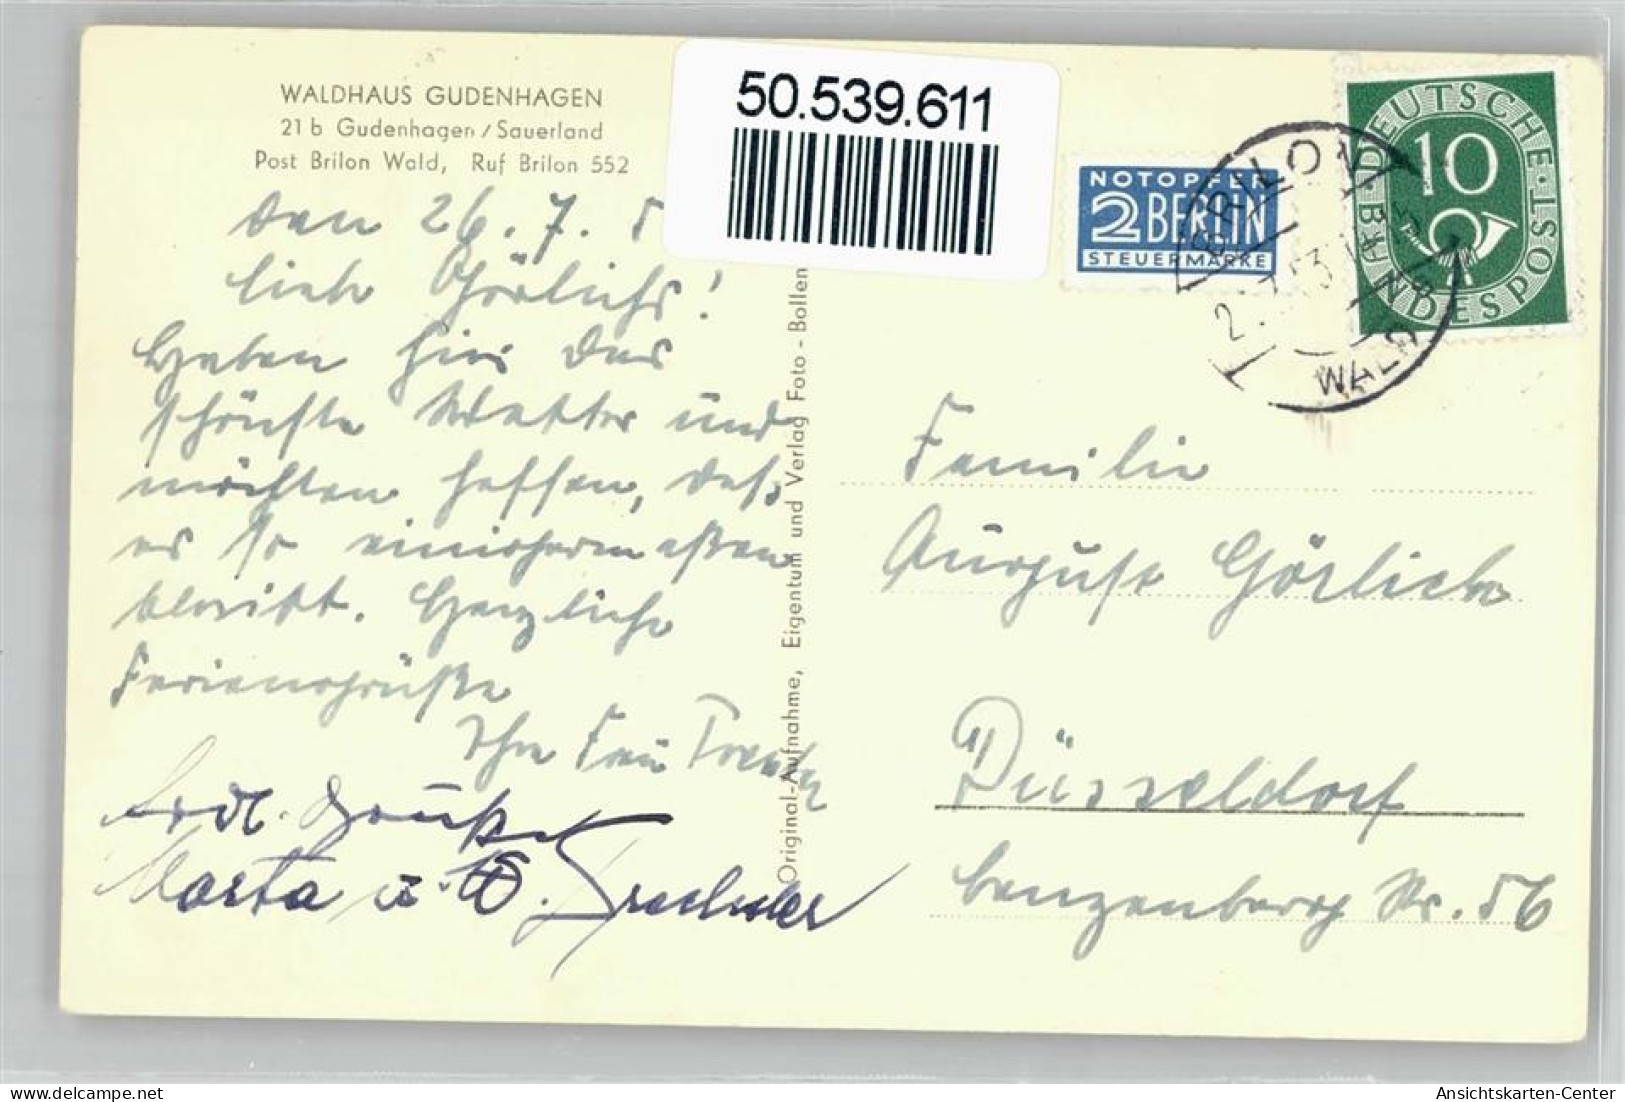 WALDHAUS GUDENHAGEN
21 b Gudenhagen / Sauerland
Post Brilon Wald, Ruf Brilon 552
50.539.611
den 26. 7. 5
Lieb Görlichs!
Haben hier das
schönste Wetter und
möchten hoffen, daß
es so einigermaßen
bleibt. Herzliche
Feriengrüße
Ihre Frau
Herzl. Grüße
Marta u. W. Drechsler
Original-Aufnahme, Eigentum und Verlag Foto - Bollen
NOTOPFER
2 BERLIN
STEUERMARKE
DEUTSCHE BUNDESPOST
10
BRILON
WALD
Familie
August Görlich
Düsseldorf
Benzenberg Str. 56
Ansichtskarten-Center